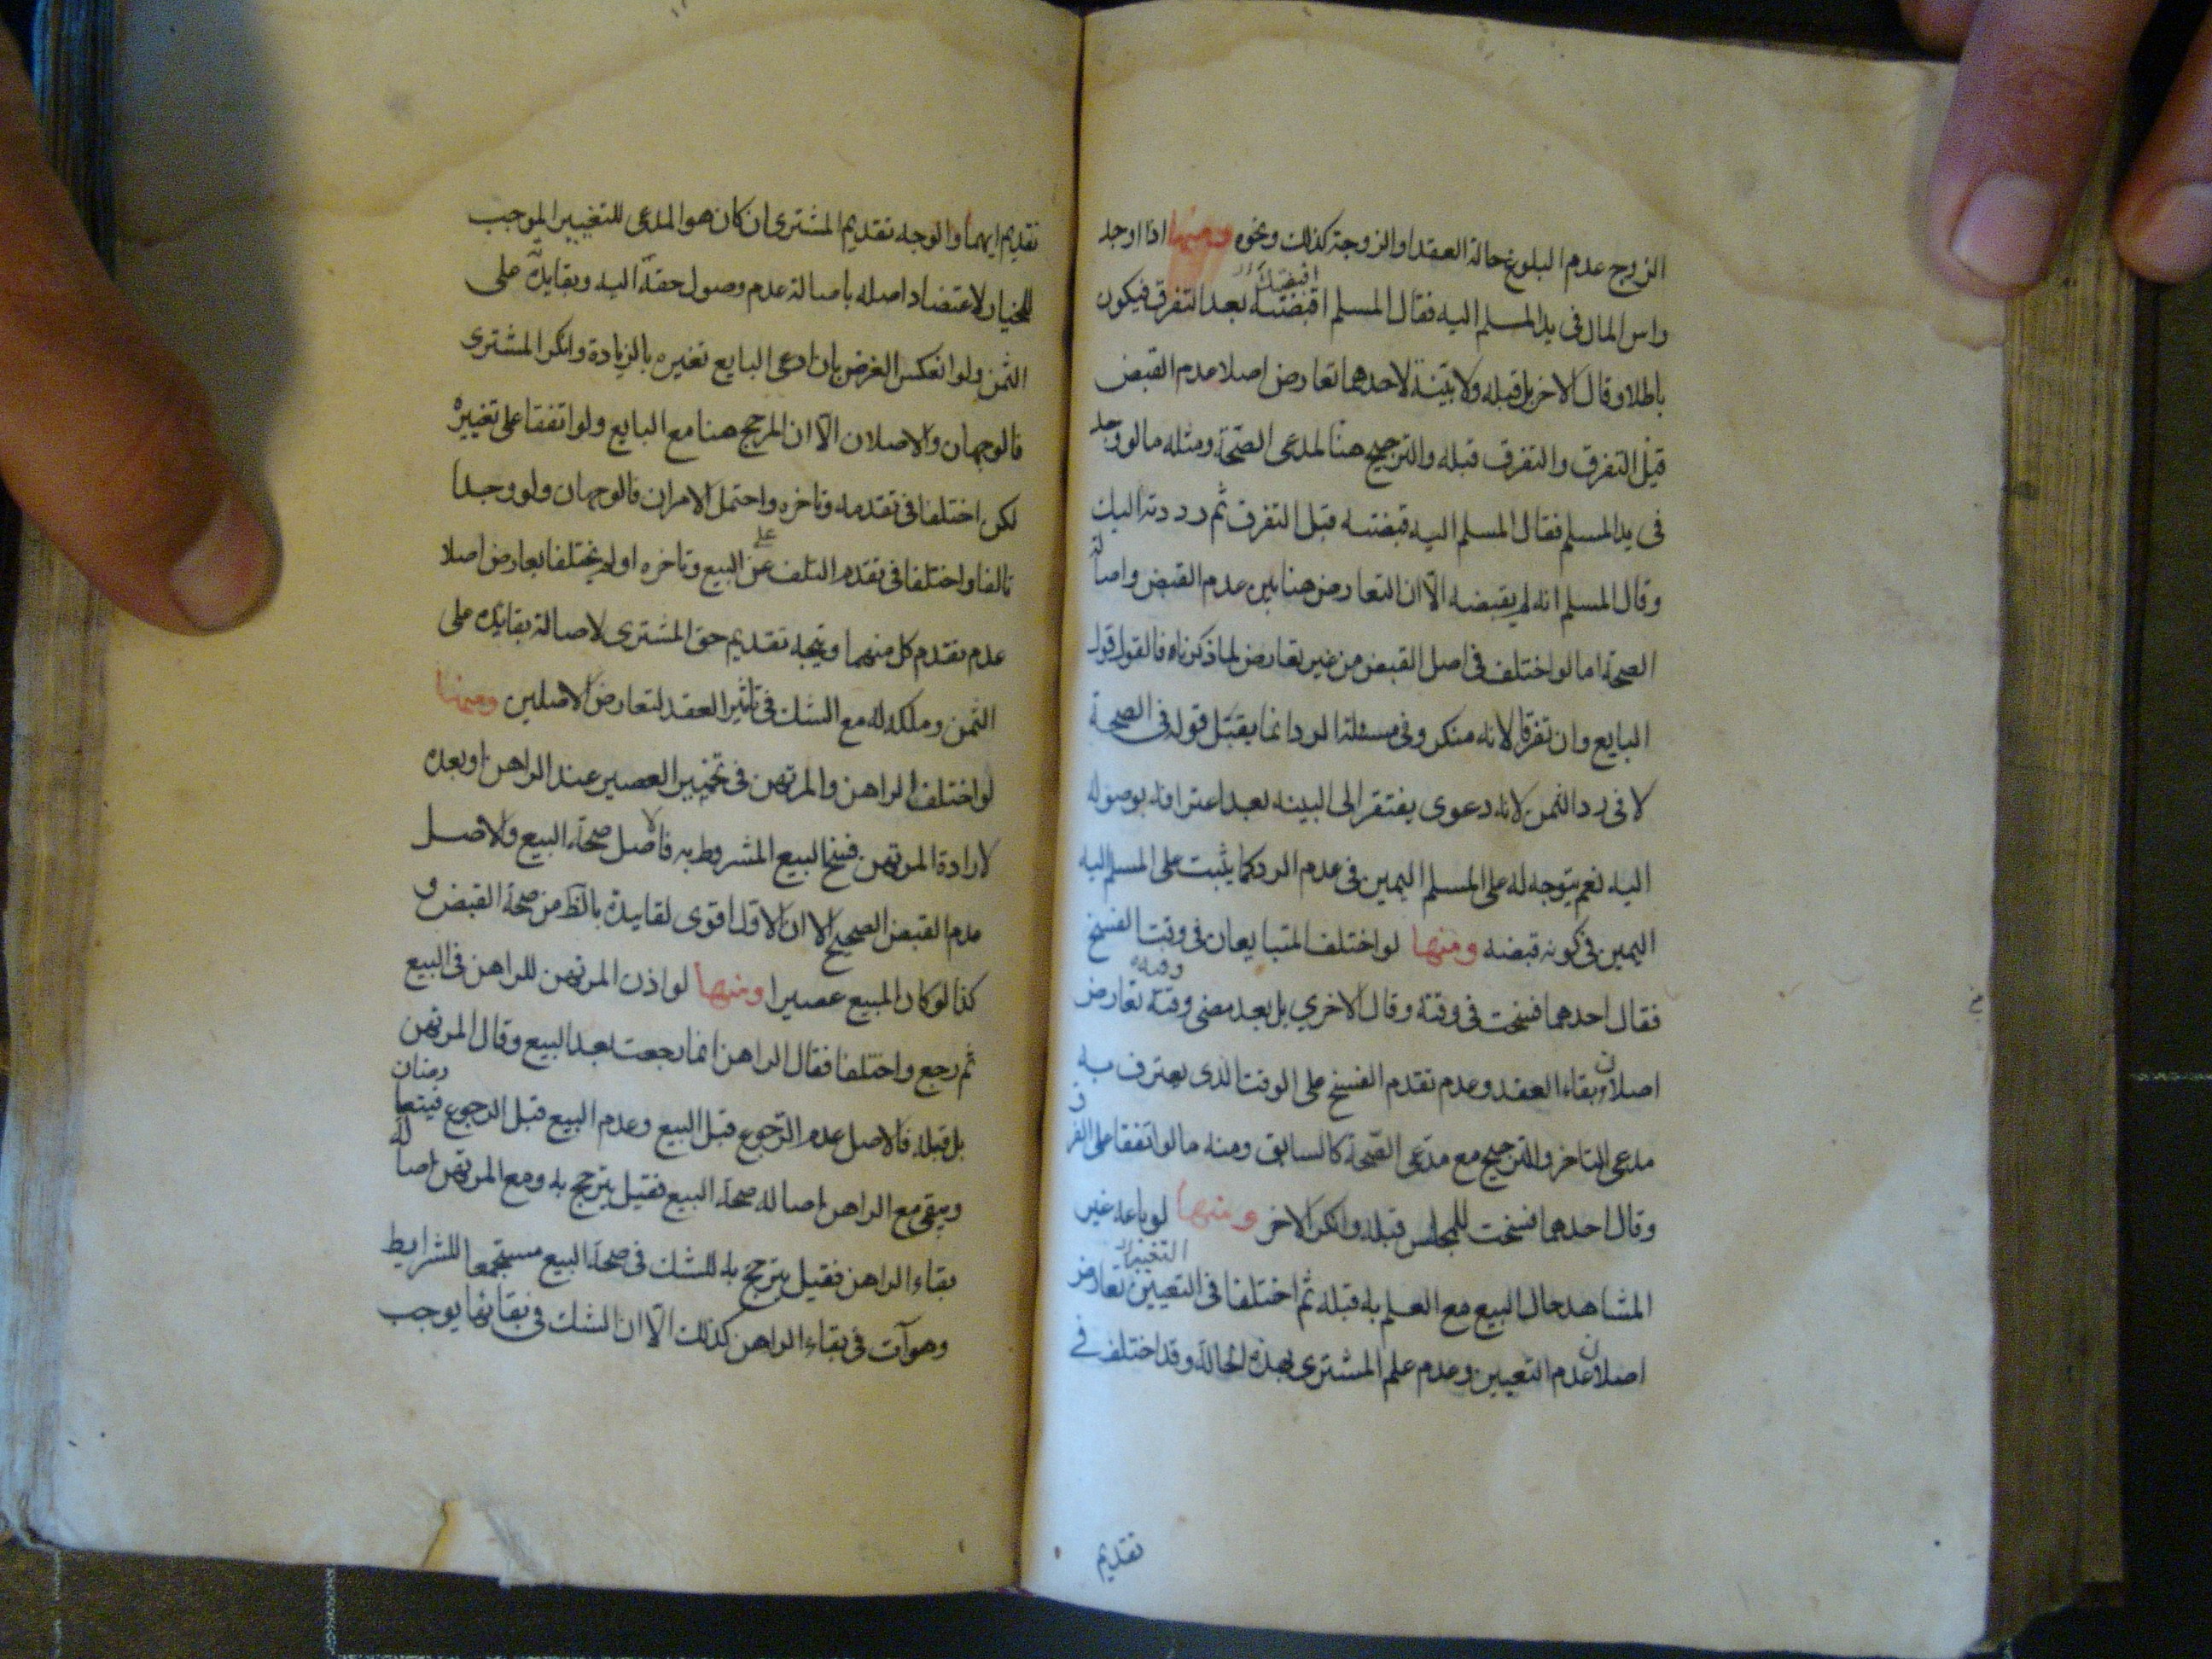 الزوج عدم البلوغ حالة العقد او الزوجة كذلك ونحوه ومنها اذا اوجد
اقبضتك
راس المال فى يد المسلم اليه فقال المسلم اقبضتنيه بعد التفرق فيكون
باطلا وقال الاخر بل قبله ولا بينة لاحدهما تعارض اصلا عدم القبض
قبل التفرق والتفرق قبله والترجيح هنا لمدعى الصحة ومثله ما لو وجد
فى يد المسلم فقال المسلم اليه قبضته قبل التفرق ثم رددته اليك
وقال المسلم انه لم يقبضه الا ان التعارض هنا بين عدم القبض واصالة
الصحة اما لو اختلف فى اصل القبض من غير تعارض لما ذكرناه فالقول قول
البايع وان تفرقا لانه منكر وفى مسئلة الرد انما يقبل قوله فى الصحة
لا فى رد الثمن لانه دعوى يفتقر الى البينه بعد اعترافه بوصوله
اليه نعم يتوجه له على المسلم اليمين فى عدم الرد كما يثبت على المسلم اليه
اليمين فى كونه قبضه ومنها لو اختلف المتبايعان فى وقت الفسخ
وقته
فقال احدهما فسخت فى وقته وقال الاخرى بل بعد مضى وقته تعارض
اصلان بقاء العقد وعدم تقدم الفسخ على الوقت الذى يعترف به
مدعى التاخر والترجيح مع مدعى الصحة كالسابق ومنه ما لو اتفقا على التفرق
وقال احدهما فسخت للمجلس قبله وانكر الاخر ومنها لو باعه غير
التغيير
المشاهد حال البيع مع العلم به قبله ثم اختلفا فى التعيين تعارض
اصلان عدم التعيين وعدم علم المشترى بهذه الحالة وقد اختلف فى
تقديم
تقديم ايهما والوجه تقديم المشترى ان كان هو المدعى للتغيير الموجب
للخيار لاعتضاد اصله باصالة عدم وصول حقه اليه وبقاء يده على
الثمن ولو انعكس الغرض بان ادعى البايع تغيره بالزيادة وانكر المشترى
فالوجهان والاصلان الا ان المرجح هنا مع البايع ولو اتفقا على تغييره
لكن اختلفا فى تقدمه وتاخره واحتمل الامران فالوجهان ولو وجدا
على
تالفا واختلفا فى تقدم التلف عن البيع وتاخره او لم يختلفا تعارض اصلا
عدم تقدم كل منهما ويتجه تقديم حق المشترى لاصالة بقاء يده على
الثمن وملكه له مع الشك فى تاثير العقد لتعارض الاصلين ومنها
لو اختلف الراهن والمرتهن فى تخمير العصير عند الراهن او بعده
لارادة المرتهن فسخ البيع المشروط به فالاصل صحة البيع والاصل
عدم القبض الصحيح الا ان الاول اقوى لتاييده بالظ من صحة القبض و
كذا لو كان المبيع عصيرا ومنها لو اذن المرتهن للراهن فى البيع
ثم رجع واختلفا فقال الراهن انما رجعت بعد البيع وقال المرتهن
رضان
بل قبله فالاصل عدم الرجوع قبل البيع وعدم البيع قبل الرجوع فيتعا
ويبقى مع الراهن اصالة صحة البيع فقيل يترجح به ومع المرتهن اصالة
بقاء الراهن فقيل يترجح به للشك فى صحة البيع مستجمعا للشرايط
وهو آت فى بقاء الراهن كذلك الا ان الشك فى بقائها يوجب